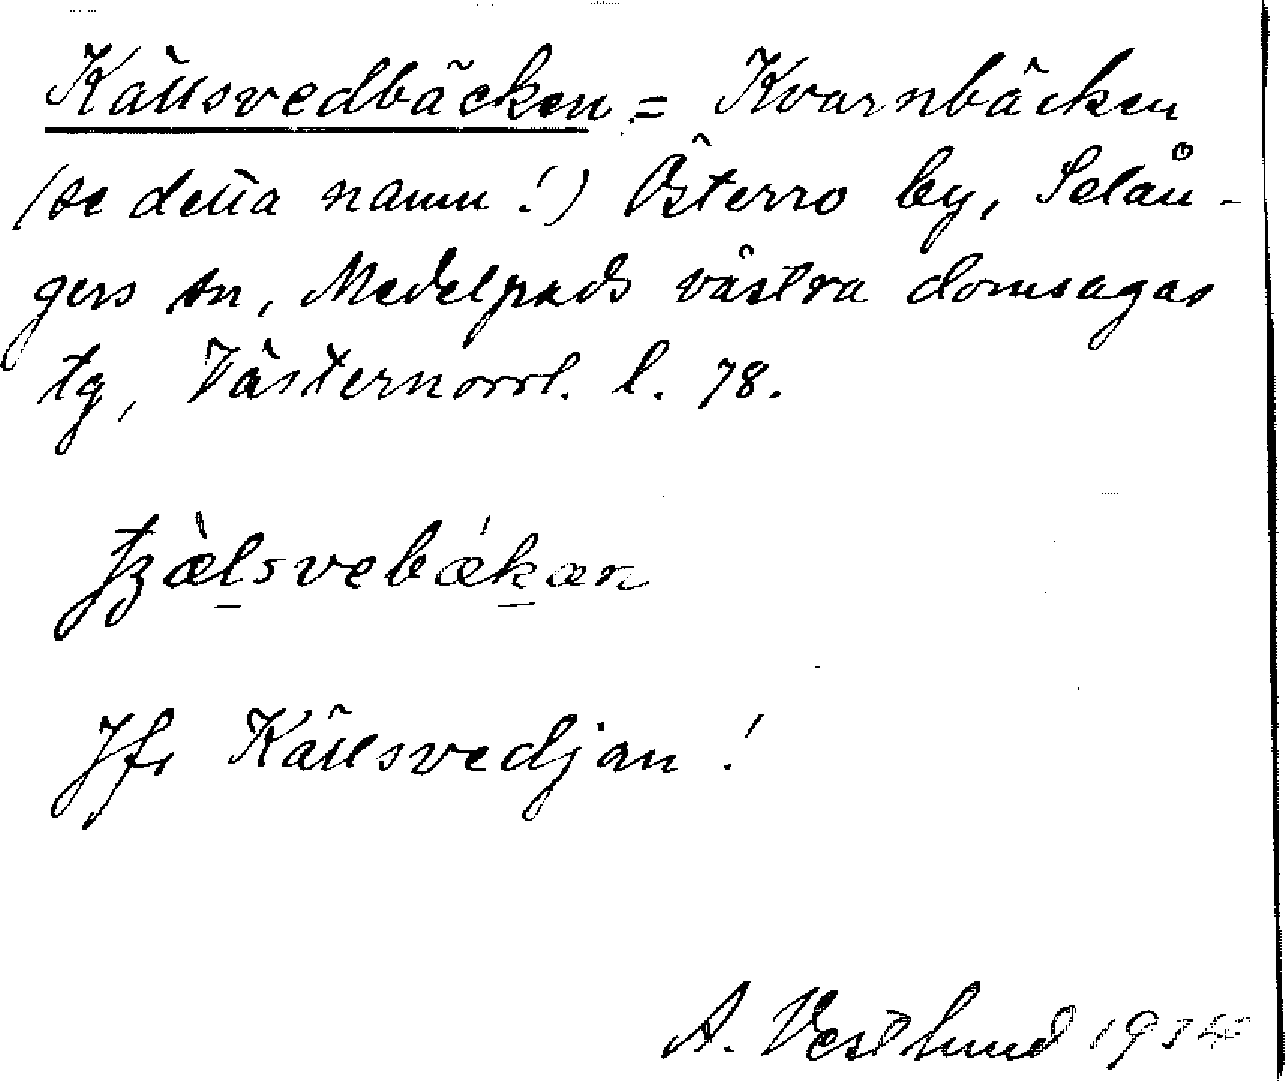 Källsvedbäcken = Kvarnbäcken
(se detta namn!) Österro by, Selån-
gers sn, Medelpads västra domsagas
tg, Västernorrl. l. 78.
tʒæ̀l̠svebǽk̠æn
Jfr Källsvedjan!
A. Vestlund 1934